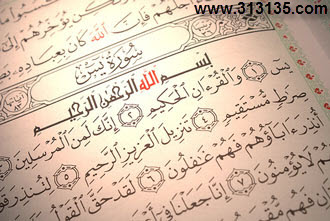 www.313135.com
جلهم فإن الله كان بعباده
سُورَةُ يسٓ
بِسْمِ ٱللَّهِ ٱلرَّحْمَٰنِ ٱلرَّحِيمِ
يسٓ ١ وَٱلْقُرْءَانِ ٱلْحَكِيمِ ٢ إِنَّكَ لَمِنَ ٱلْمُرْسَلِينَ
صِرَٰطٍ مُّسْتَقِيمٍ ٤ تَنزِيلَ ٱلْعَزِيزِ ٱلرَّحِيمِ ٥ لِتُنذِرَ
أُنذِرَ ءَابَآؤُهُمْ فَهُمْ غَٰفِلُونَ ٦ لَقَدْ حَقَّ ٱلْقَوْلُ
لَا يُؤْمِنُونَ ٧ إِنَّا جَعَلْنَا
فَهُم